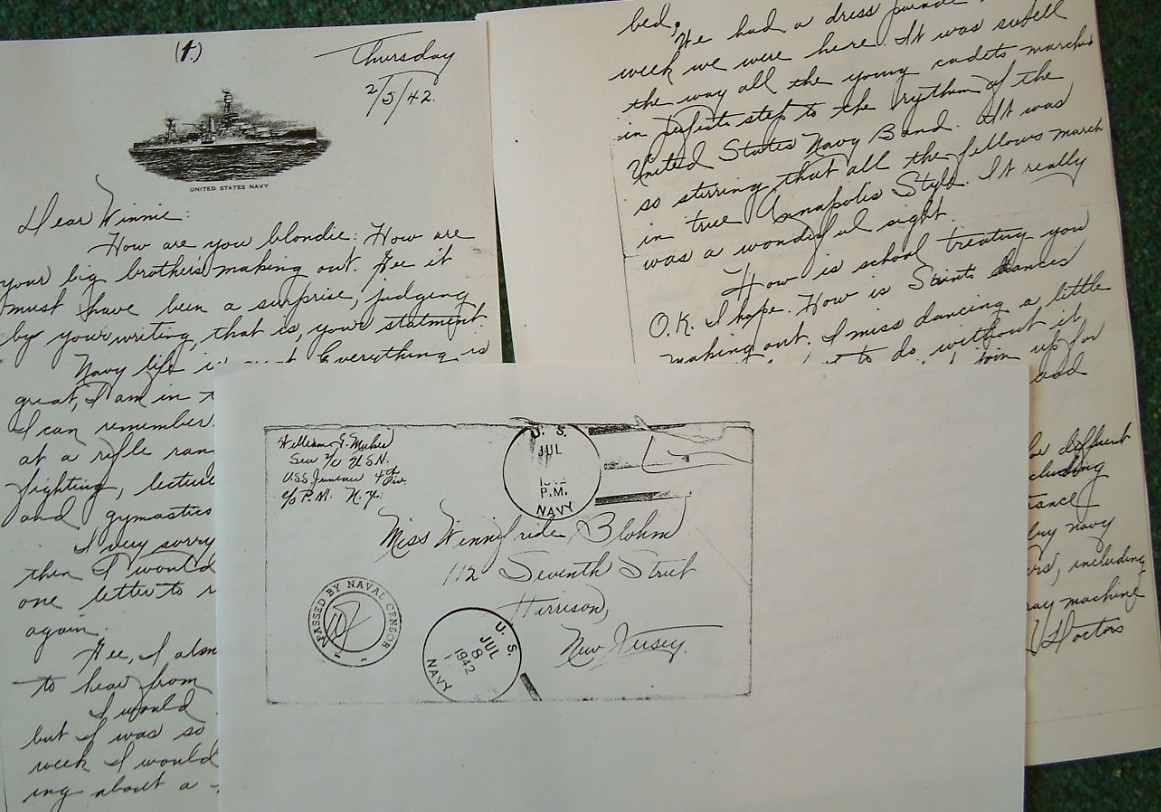 (1.)
Thursday
2/5/42.
UNITED STATES NAVY
Dear Winnie:
How are you blondie: How are
your big brothers making out. Gee it
must have been a surprise, judging
by your writing, that is, your statment.
Navy life Everything is
great, I am in
I can remember.
at a rifle
fighting, lecture
and gymastics
I very sorry
then I would
one letter to
again.
Gee, I
to hear from
I would
but I was so
week I would
ing about a
bed.
We had a dress parade
week we were here. It was
the way all the young cadets
in step to the rythem of the
United States Navy Band. It was
so stirring that all the fellows march
in true Annapolis Style. It really
was a wonderful sight.
How is school treating you
O.K. I hope. How is Saints dances
making out. I miss dancing a little
to do without it,
up for
and
different
navy
including
machine
Doctors
William J.
Sea 2/c U.S.N.
U.S.S. Juneau 4th Div.
c/o P.M. N.Y.
U.S.
JUL
P.M.
NAVY
Miss Winnifride Blohm
112 Seventh Street
Harrison,
New Jersey.
PASSED BY NAVAL CENSOR
U.S.
JUL
8
1942
NAVY